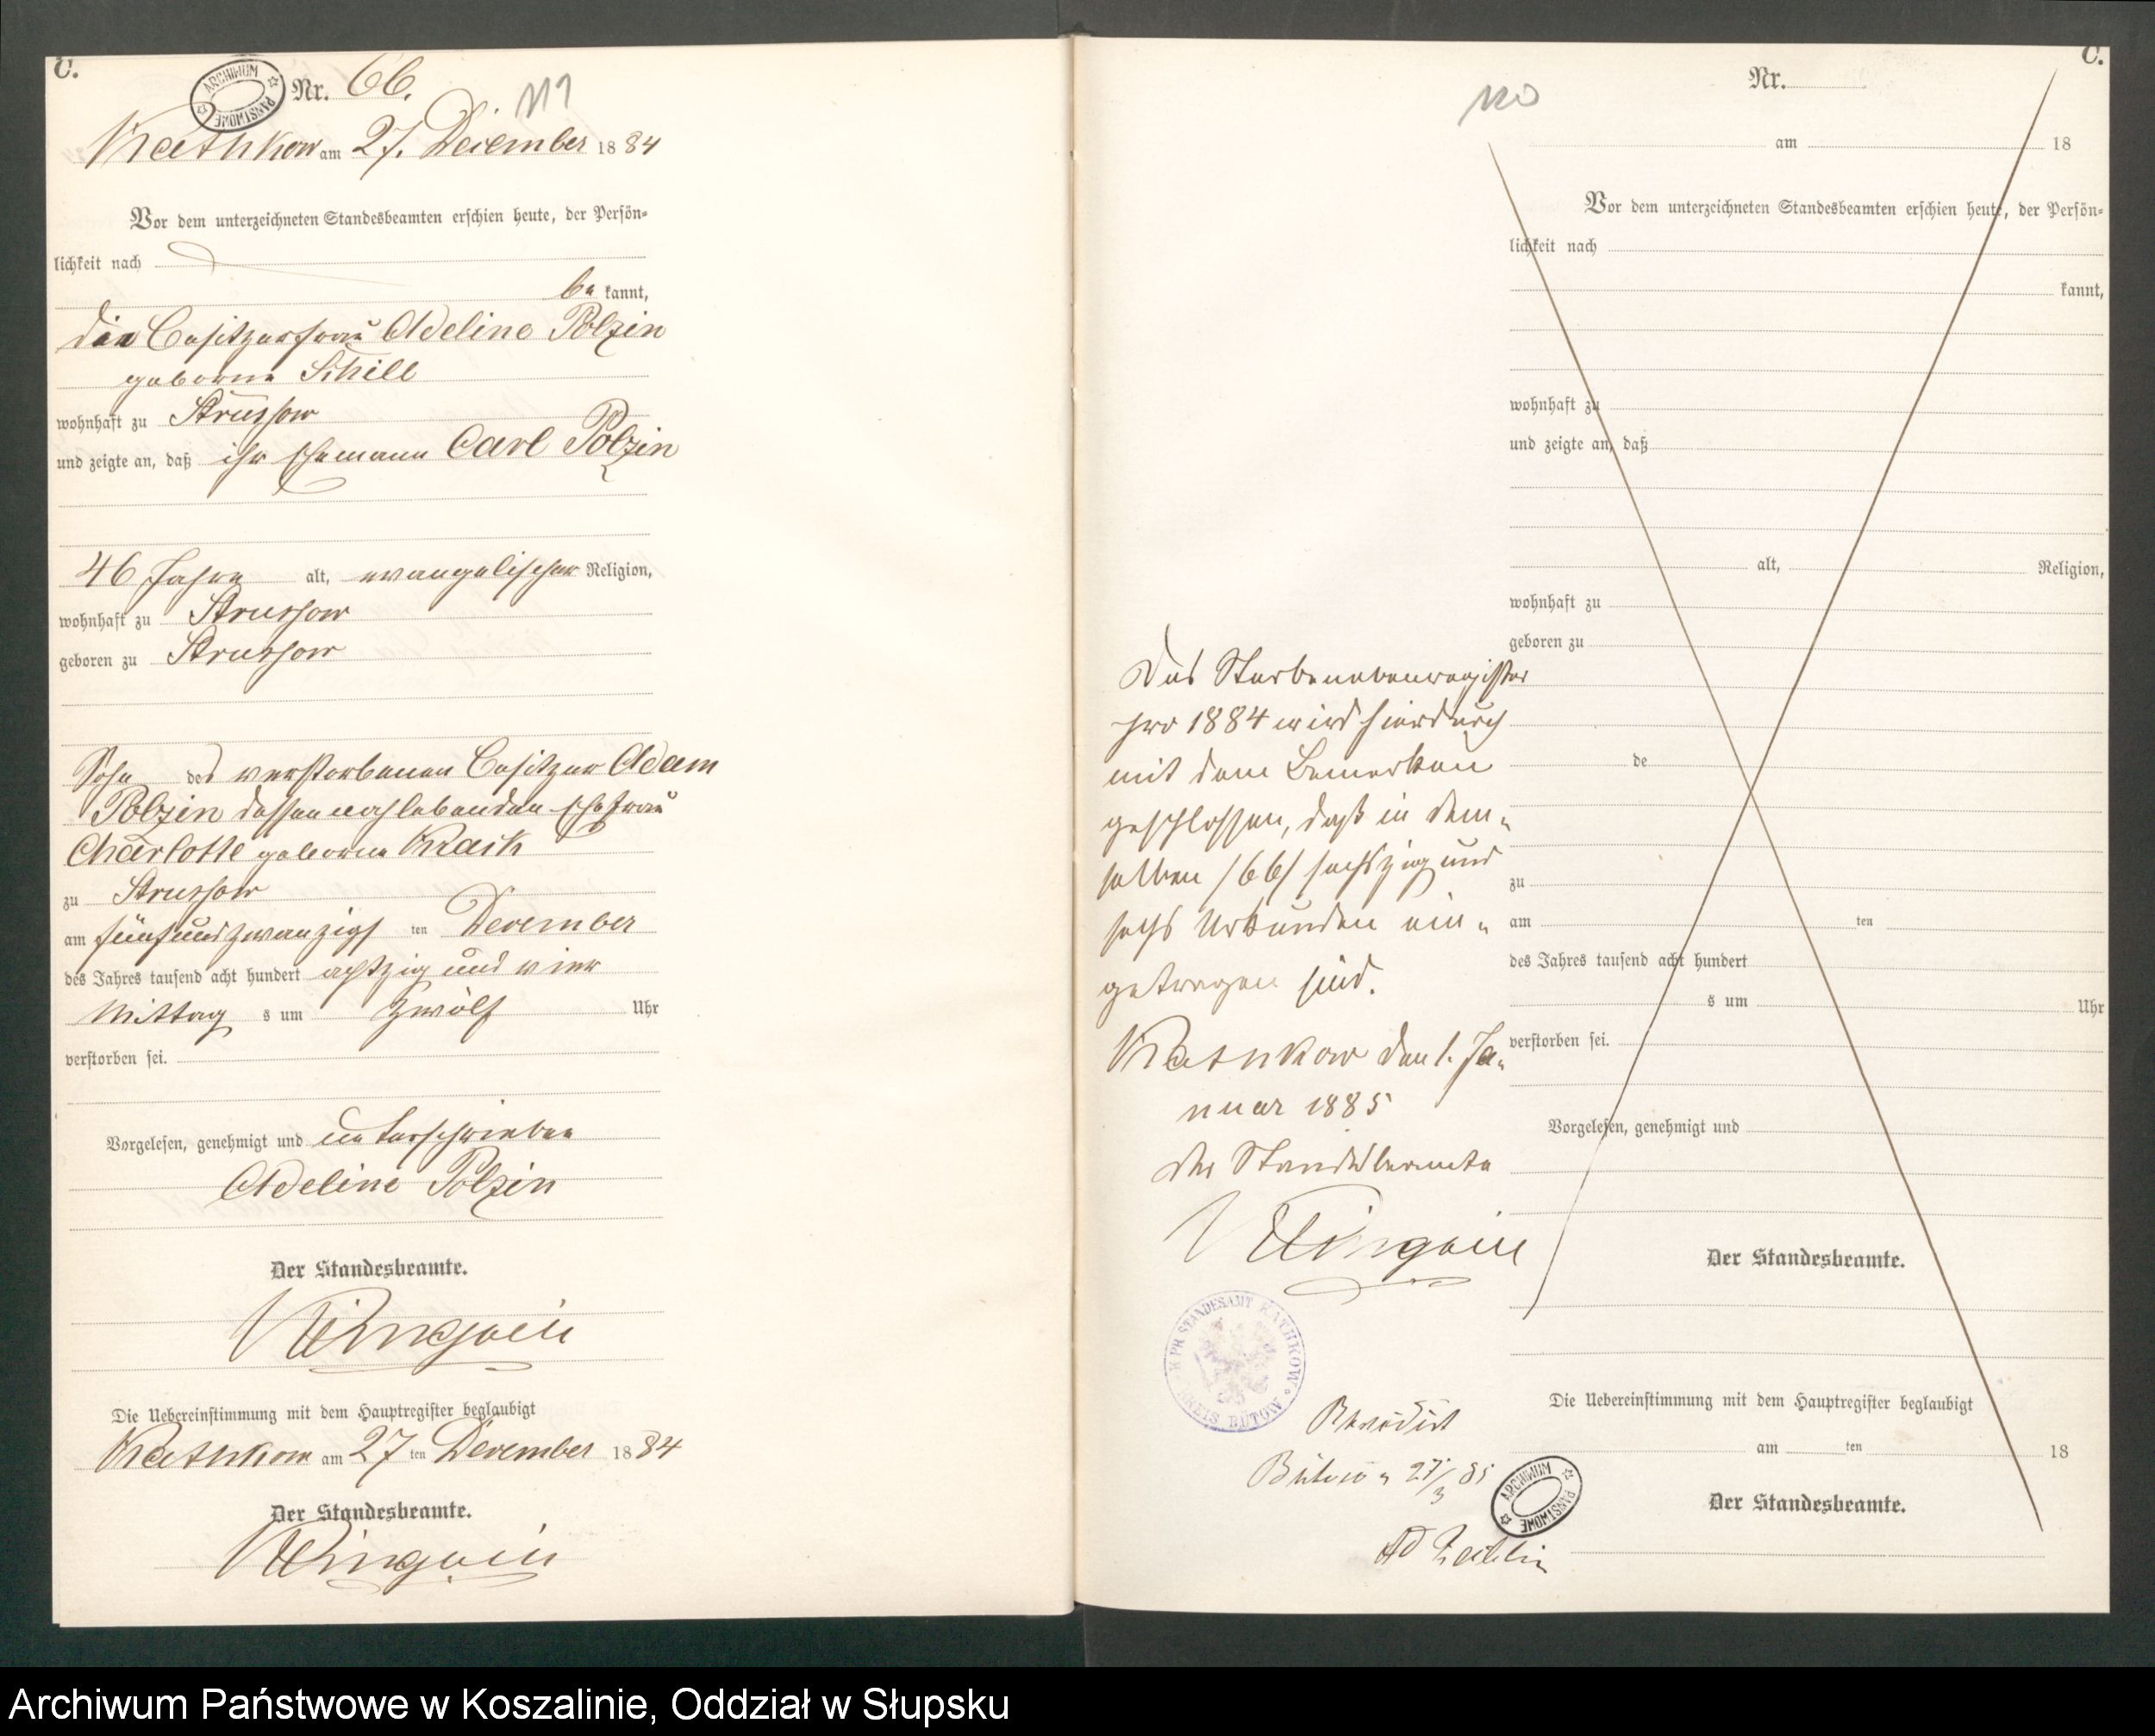 C.
ARCHIWUM PAŃSTWOWE
Nr. 66.
119
Kathkow am 27. December 1884
Vor dem unterzeichneten Standesbeamten erschien heute, der Persön-
lichkeit nach
be kannt,
die Besitzerfrau Adeline Polzin
geborne Schill
wohnhaft zu Strussow
und zeigte an, daß ihr Ehemann Carl Polzin
46 Jahre alt, evangelischer Religion,
wohnhaft zu Strussow
geboren zu Strussow
Sohn des verstorbenen Besitzer Adam
Polzin dessen noch lebenden Ehefrau
Charlotte geborne
zu Strussow
am fünfundzwanzigs ten December
des Jahres tausend acht hundert achtzig und vier
Mittag s um zwölf Uhr
verstorben sei.
Vorgelesen, genehmigt und unterschrieben
Adeline Polzin
Der Standesbeamte.
Die Uebereinstimmung mit dem Hauptregister beglaubigt
Kathkow am 27 ten December 1884
Der Standesbeamte.
C.
120
Nr.
am 18
Vor dem unterzeichneten Standesbeamten erschien heute, der Persön-
lichkeit nach
kannt,
wohnhaft zu
und zeigte an, daß
alt, Religion,
wohnhaft zu
geboren zu
de
zu
am ten
des Jahres tausend acht hundert
s um Uhr
verstorben sei.
Vorgelesen, genehmigt und
Der Standesbeamte.
Die Uebereinstimmung mit dem Hauptregister beglaubigt
am ten 18
Der Standesbeamte.
Das Sterbenebenregister
pro 1884 wird hierdurch
mit dem Bemerken
geschlossen, daß in dem-
selben /66/ sechszig und
sechs Urkunden ein-
getragen sind.
Kathkow den 1. Ja-
nuar 1885
Der Standesbeamte
K. PR. STANDESAMT KATHKOW
KREIS BÜTOW
Revidirt
Bütow 27/3 85
ARCHIWUM PAŃSTWOWE
Archiwum Państwowe w Koszalinie, Oddział w Słupsku